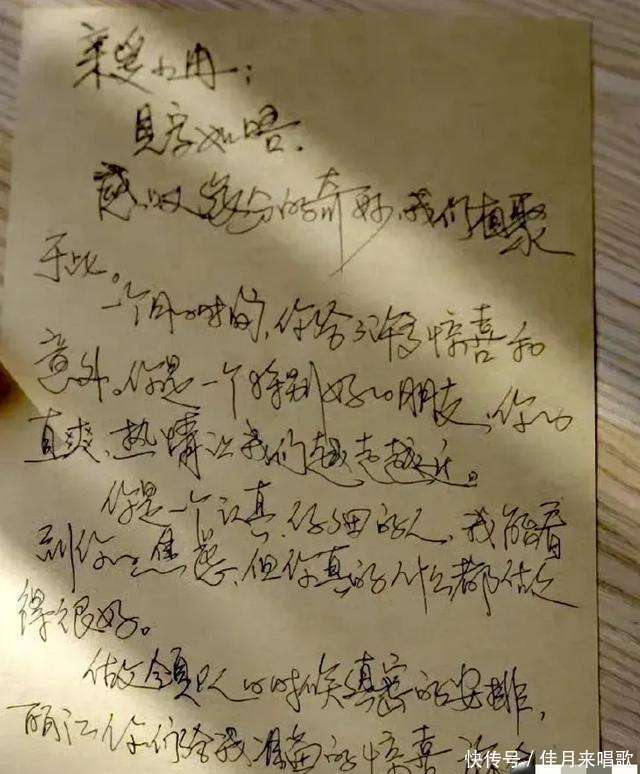 亲爱小冉:
见字如晤.
感叹缘分的奇妙,我们相聚
于此。
一个月的时间,你给了许多惊喜和
意外。你是一个特别好的朋友,你的
直爽、热情让我们越走越近。
你是一个认真、仔细的人,我能看
到你的焦虑,但你真的什么都做
得很好。
做领队的时候缜密的安排,
丽江你们给我准备的惊喜
快传号/佳月来唱歌